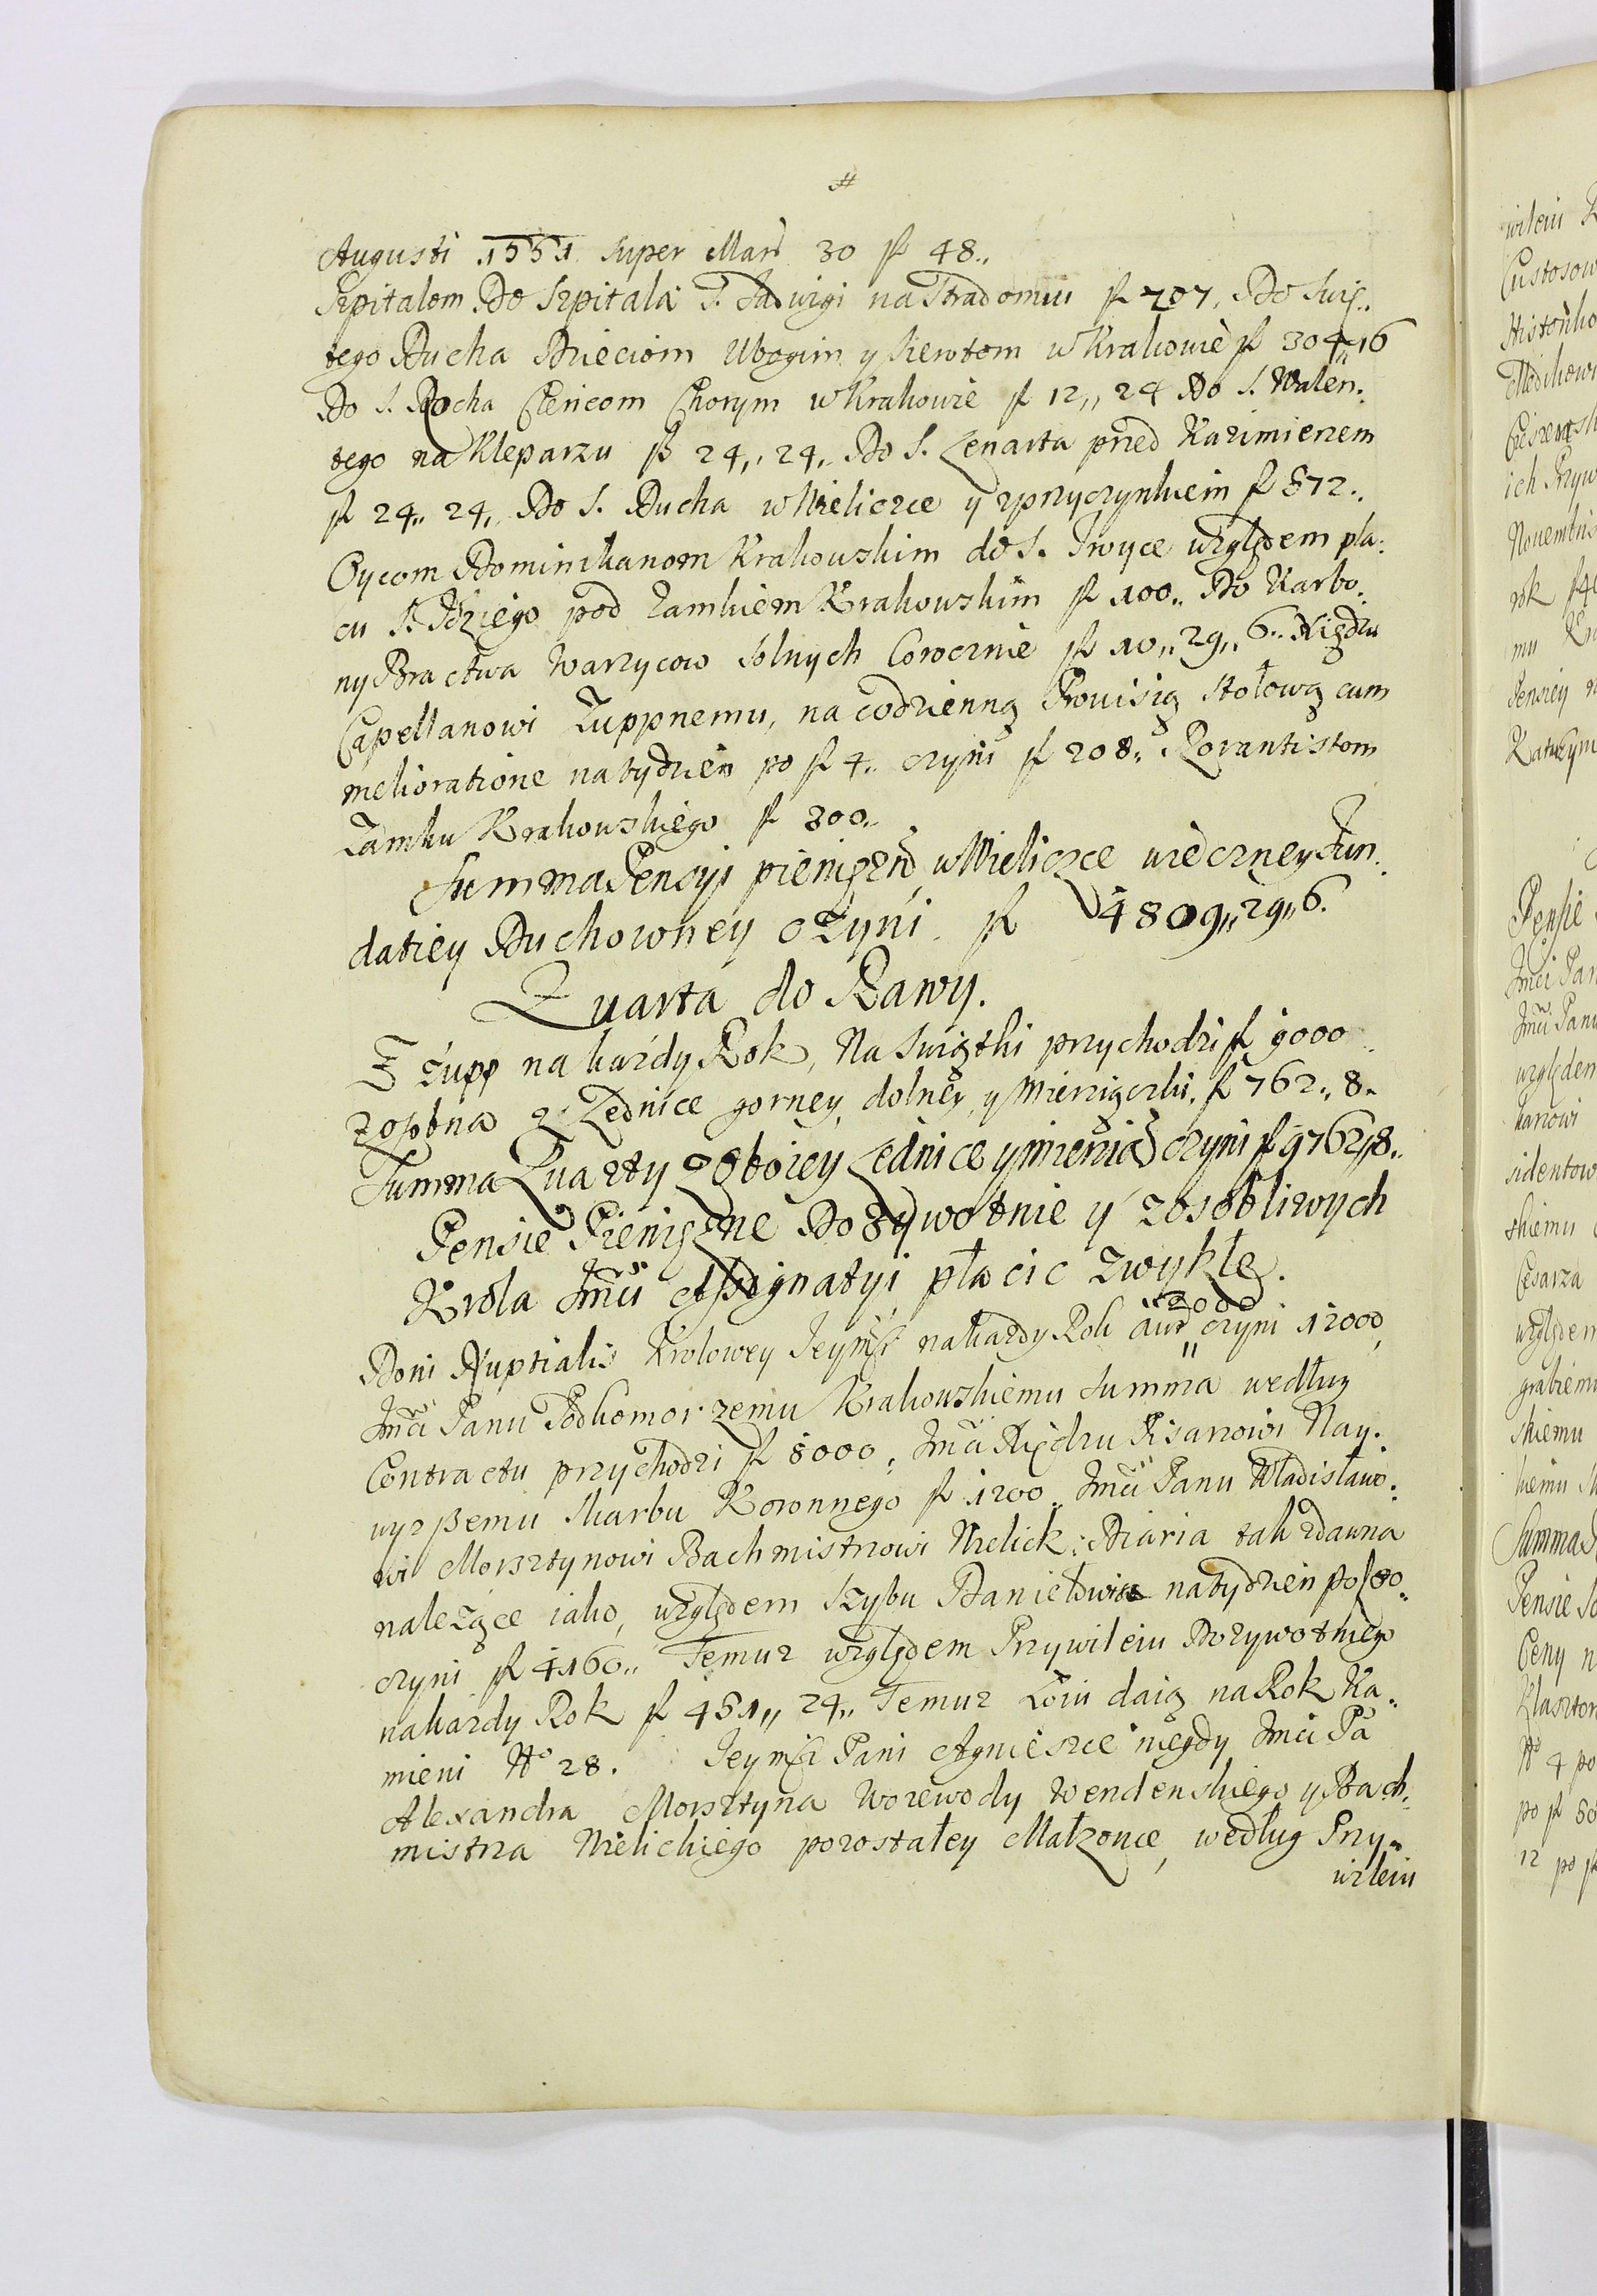 Augusti 1551 super Mar 30 fl 48„
Szpitalom Do Szpitala S. Jadwigi na Stradomiu fl 707, Do Swię:
tego Ducha Dzieciom Ubogim y Sierotom w Krakowie fl 304„16
Do S. Rocha Clericom Chorym w Krakowie fl 12„ 24 Do S. Walen:
tego na Kleparzu fl 24„ 24„ Do S. Lenarta przed Kazimierzem
fl 24„ 24„ Do S. Ducha w Wieliczce y z przyczynkiem fl 572„
Oycom Dominikanom Krakowskim do S. Troyce względem pla:
cu S. Idziego pod Zamkiem Krakowskim fl 100„ Do Karbo:
ny Bractwa Warzycow Solnych Corocznie fl 10„ 29„ 6„ Xiędzu
Capellanowi Zuppnemu, na codzienną Prowisią stołową cum
melioratione na tydzien po fl 4„ czyni fl 208„ Rorantistom
Zamku Krakowskiego fl 300„
Summa Pensyi pienięzn w Wieliczce wieczney Fun:
datiey Duchowney czyni fl 4809„29„6.
Quarta do Rawy.
Z Zupp na kazdy Rok, Na Swiątki przychodzi fl 9000
zosobna z Lednice gorney, dolney, y Mierziączki fl 762„ 8„
Summa Quarty z oboiey Lednice y mierzią czyni fl 9762„8„
Pensie Pienięzne Dozywotnie y zosobliwych
Krola Jmci Assignatyi płacic zwykłe.
2000
Doni Nuptialis Krolowey Jeymci na kazdy Rok aur czyni 12000
Jmci Panu Podkomorzemu Krakowskiemu Summa według
Contractu przychodzi fl 8000, Jmci Xiędzu Pisarzowi Nay:
wyzszemu Skarbu Koronnego fl 1200„ Jmci Panu Władisławo:
wi Morsztynowi Bachmistrzowi Wielick: Diaria tak zdawna
nalezące iako, względem Szybu Daniełowice na tydzien po fl 80
czyni fl 4160„ Temuz względem Przywileiu Dozywotniego
na kazdy Rok fl 451„ 24„ Temuz Łoiu daią na Rok Ka:
mieni No 28. Jeymci Pani Agnieszce niegdy Jmci Pa
Alexandra Morsztyna Woiewody Wendenskiego y Bach:
mistrza Wielickiego pozostałey Małzonce, według Przy:
wileiu